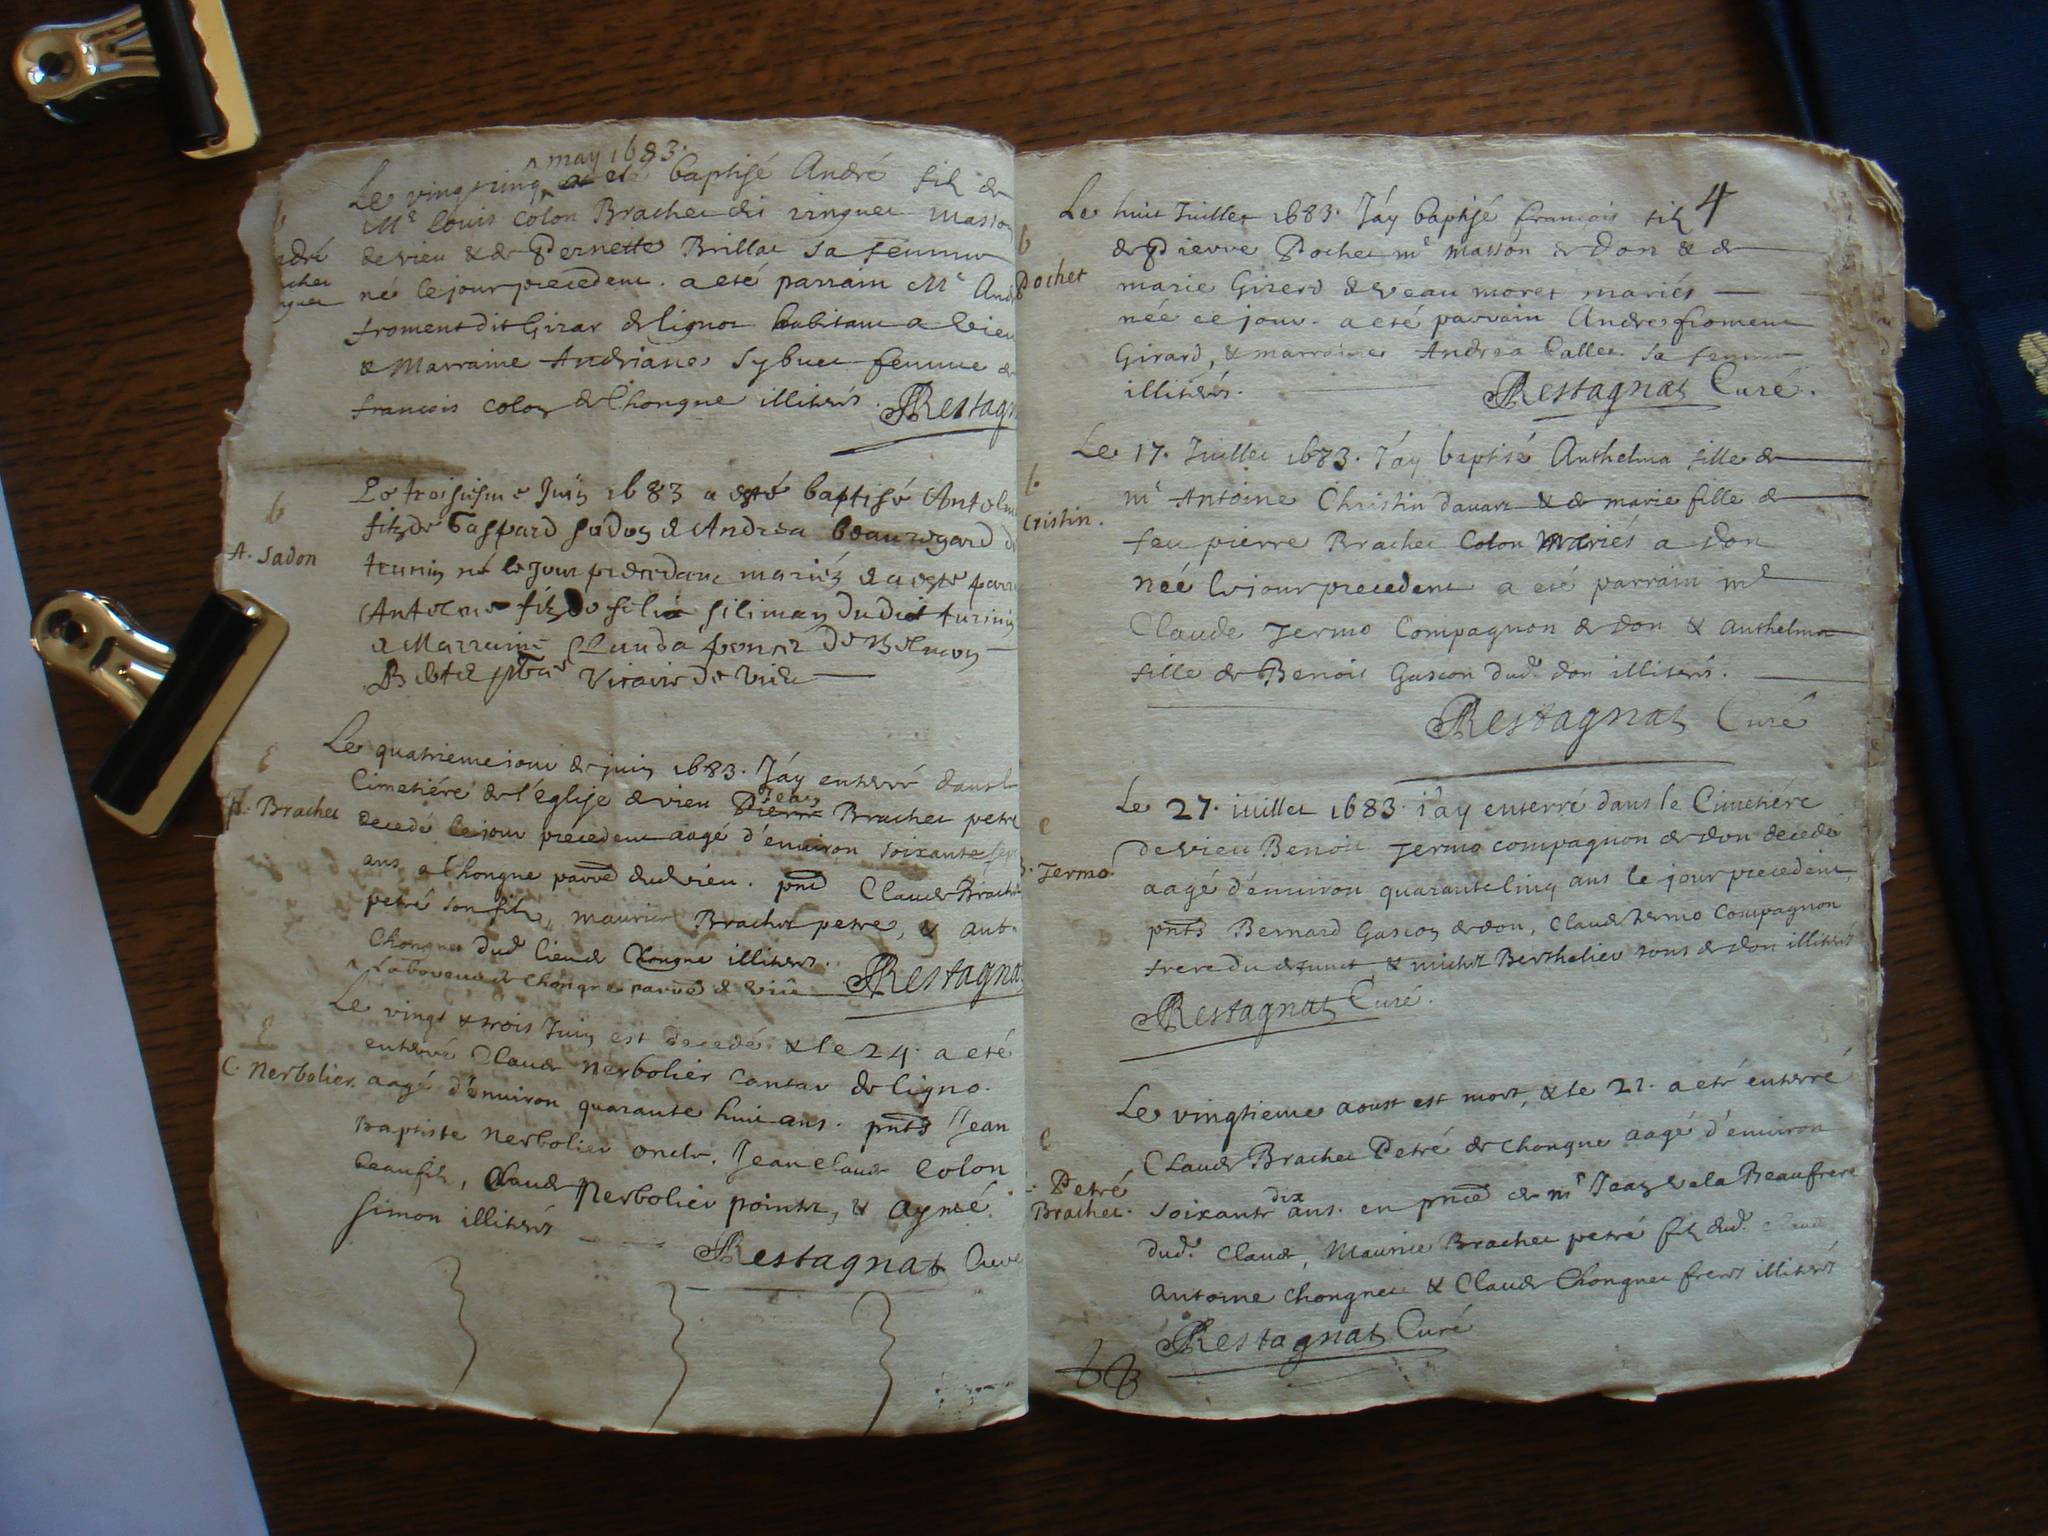 may 1683.
Le vingt cinq a eté baptisé André fils de
Mr Louis Colon Brachet dit vinguet masson
dré de vieu & de Pernette Brillat sa femme
né le jour precedent. a eté parrain Mr And
froment dit Girar de lignor habitant a vieu
& Marraine Andriane Sybuet femme de
francois Colon de Chongne illiterés. Restagn
b
A. Sadon
Le troisiesme Juin 1683 a esté baptisé Antelme
filz de Gaspard Sadon & Andrea beauregard de
né le Jour precedant mariéz & a esté parr
Antelme filz de siliman dudict turinin
& Marraine Clauda de
Vicaire de vieu
e
Brachet
Le quatrieme jour de juin 1683. J'ay enterré dans le
Cimetiére de l'église de vieu Pierre Jean Brachet petré
decedé le jour précedent aagé d'environ soixante sept
ans, a Chongne parroe dud vieu. pnt Claude Brachet
petré son fils, maurice Brachet petré, & ant.
Chongnet dud. lieu de Chongne illiterés.
laboureur de Chongne parroe de vieu Restagnat
e
C. Nerbolier.
Le vingt & trois Juin est decedé & le 24. a eté
enterré Claude Nerbolier cantar de ligno.
aagé d'environ quarante huit ans. pnts Jean
Baptiste Nerbolier oncle. Jean Claude Colon
beaufils, Claude Nerbolier pointe, & Aymé.
Simon illiterés
Restagnat Curé
4
b
Pochet
Le huit Juillet 1683. J'ay baptisé francois fils
de Pierre Pochet mr masson de Don & de
marie Girerd de veau moret mariés
née ce jour. a eté parrain Andre froment
Girard, & marraine Andrea Callet sa femme
illiterés. Restagnat Curé.
b
Cristin.
Le 17. Juillet 1683. J'ay baptisé Anthelma fille de
mr Antoine Christin davart & de marie fille de
feu pierre Brachet Colon mariés a Don
née le jour precedent a eté parrain mr
Claude Jermo Compagnon de Don & Anthelma
fille de Benoit Gascon dud. don illiterés.
Restagnat Curé
e
B. Jermo
Le 27. juillet 1683. j'ay enterré dans le Cimetiére
de vieu Benoit Jermo compagnon de don decedé
aagé d'environ quarante cinq ans le jour precedent,
pnts Bernard Gascon de don, Claude Jermo Compagnon
frere du defunct & michel Berthelier tous de don illiterés
Restagnat Curé.
e
Petré
Brachet.
Le vingtieme aoust est mort, & le 21. a eté enterré
Claude Brachet Petré de Chongne aagé d'environ
soixante dix ans. en pnce de mr Jean Vela Beaufrere
dud. Claude, Maurice Brachet petré fils dud. Claude
Antoine Chongnet & Claude Chongnet freres illiterés
Restagnat Curé